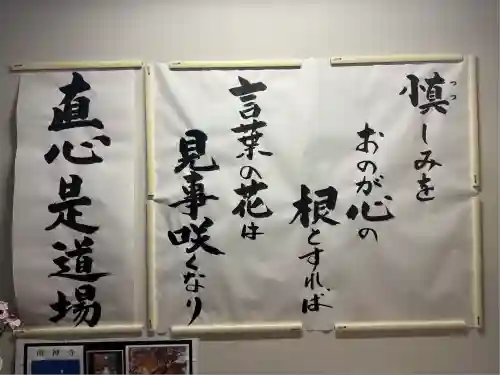 慎しみを
つつ
おのが心の
根とすれば
言葉の花は
見事咲くなり
直心是道場
南禅寺